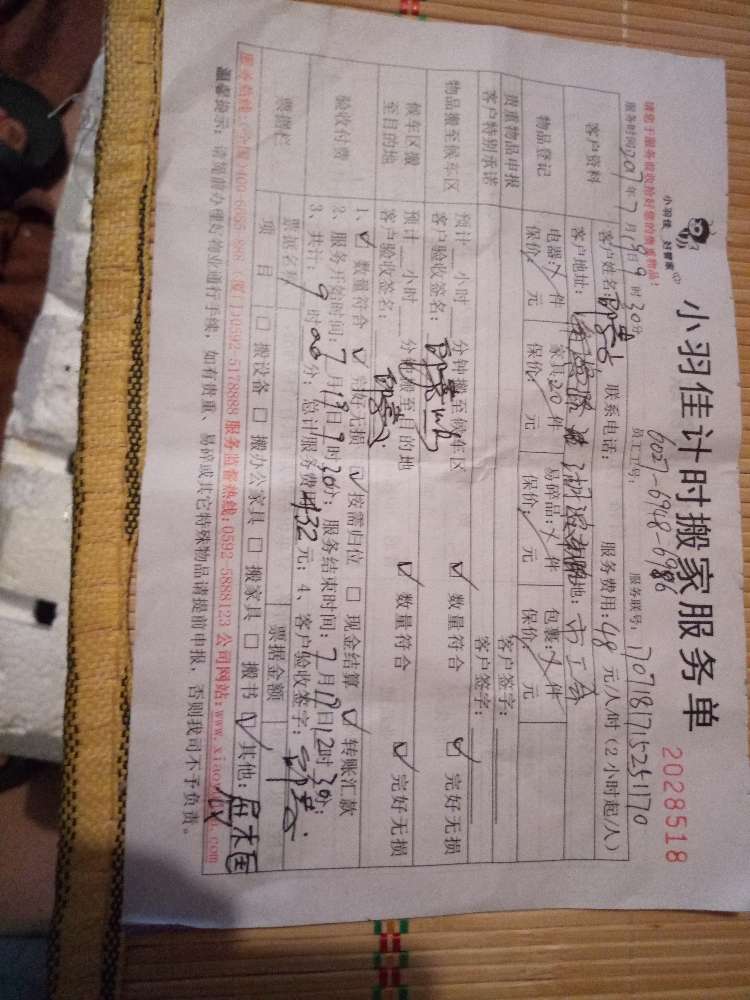 小羽佳 好管家
小羽佳计时搬家服务单
2028518
请您于服务前收捡好您的贵重物品!
员工工号: 6027-6948-6986
服务时间:2017年7月19日9时30分
服务联号: 1707181715251170
客户资料
客户姓名: 联系电话: 服务费用:48元/人/时(2小时起/人)
客户地址: 目的地:市工会
物品登记
电器: 件 家具:200件 易碎品: 件 包裹: 件
保价: 元 保价: 元 保价: 元 保价: 元
贵重物品申报 客户签字:
客户特别承诺 客户签字:
物品搬至候车区
预计 小时 分钟搬至候车区
客户验收签名: ☑ 数量符合 ☑ 完好无损
候车区搬至目的地
预计 小时 分钟搬至目的地
客户验收签名: ☑ 数量符合 ☑ 完好无损
验收付费
1、☑ 数量符合 ☑ 完好无损 ☑ 按需归位 ☐ 现金结算 ☑ 转账汇款
2、服务开始时间:7月19日9时30分; 服务结束时间:7月19日12时30分;
3、共计: 9时00分; 总计服务费用432元; 4、客户验收签字:
票据栏
票据名称 票据金额
项目 ☐ 搬设备 ☐ 搬办公家具 ☐ 搬家具 ☐ 搬书 ☑ 其他:
服务热线:(全厦)400-6655-888 (厦门)0592-5178888 服务监督热线:0592-5888123 公司网站:www.xiaoyujia.com
温馨提示: 请提前办理好物业通行手续, 如有贵重、易碎或其它特殊物品请提前申报, 否则我司不予负责。